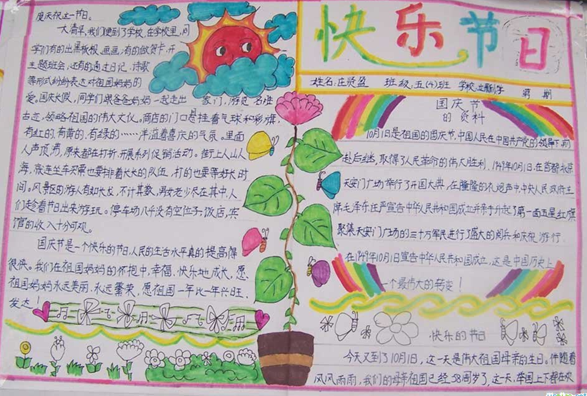 快乐节日
姓名:庄晓盈 班级:五(4)班 学校:
国庆节
的资料
10月1日是祖国的国庆节,中国人民在中国共产党的领导下前
赴后继,取得了人民革命的伟大胜利。1949年10月1日,在首都北京
天安门广场举行了开国大典,在隆隆的礼炮声中,中央人民政府主
席毛泽东庄严宣告中华人民共和国成立,并亲手升起了第一面五星红旗
聚集天安门广场的三十万军民进行了盛大的阅兵和庆祝游行
在1949年10月1日宣告中华人民共和国成立,这是中国历史上
一个最伟大的转变!
快乐的节日
今天又到了10月1日,这一天是伟大祖国母亲的生日,伴随着
风风雨雨,我们的母亲祖国已经58周岁了,这一天,举国上下都在欢
度庆祝这一节日。
大清早,我们便到了学校,在学校里,同
学们有的出黑板报,画画,有的做贺卡,开
主题班会,还有的通过日记、诗歌
等形式纷纷表达对祖国妈妈的
爱。国庆长假,同学们跟爸爸妈妈一起走出家门,游览名胜
古迹,领略祖国的伟大文化。商店的门口悬挂着气球和彩旗
有红的,有黄的,有绿的……洋溢着喜庆的气氛,里面
人声顶沸,原来都在打折,开展系列促销活动。街上人山人
海,就连坐车买票也要排着长长的队伍,打的也要等好长时
间。风景区的游人有如长龙,不计其数,男女老少乐在其中,人
们趁着节日出来游玩。停车场几乎没有空位子,饭店,宾
馆的收入十分可观。
国庆节是一个快乐的节日,人民的生活水平真的提高得
很快。我们在祖国妈妈的怀抱中,幸福、快乐地成长,愿
祖国妈妈永远美丽,永远繁荣,愿祖国一年比一年兴旺
发达!